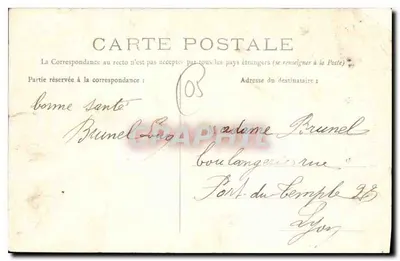 CARTE POSTALE
La Correspondance au recto n'est pas acceptée par tous les pays étrangers (se renseigner à la Poste)
Partie réservée à la correspondance :
Adresse du destinataire :
05
bonne santé
Brunel
adame Brunel
boulangerie rue
Port du Temple 22
Lyon